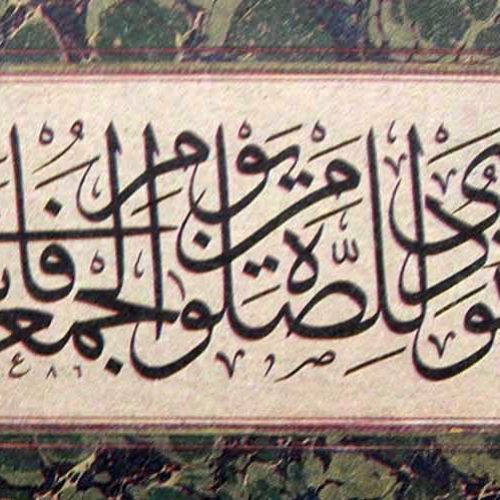 نودى للصلوة من يوم الجمعة